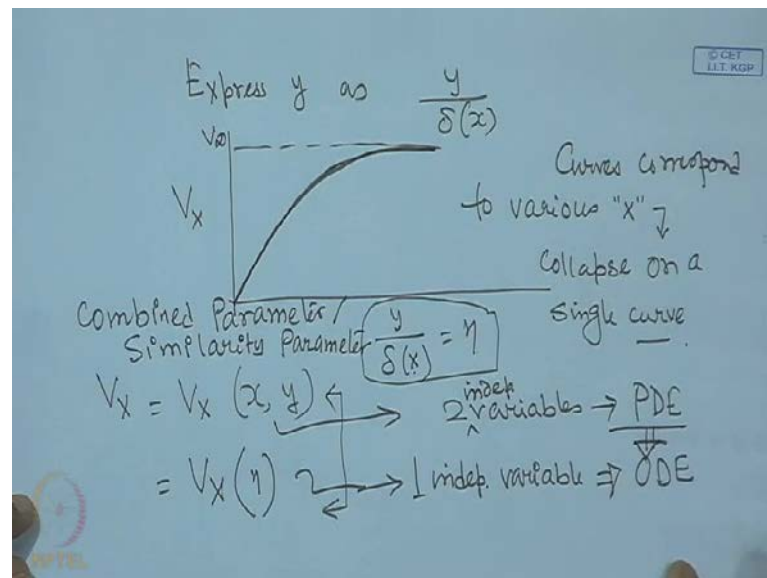 © CET
I.I.T. KGP
Express y as y / δ(x)
V∞
Vx
Curves correspond
to various "x"
Collapse on a
single curve.
Combined Parameter /
Similarity Parameter y / δ(x) = η
Vx = Vx (x, y) → 2 indep. variables → PDE
= Vx (η) → 1 indep. variable ⇒ ODE
NPTEL